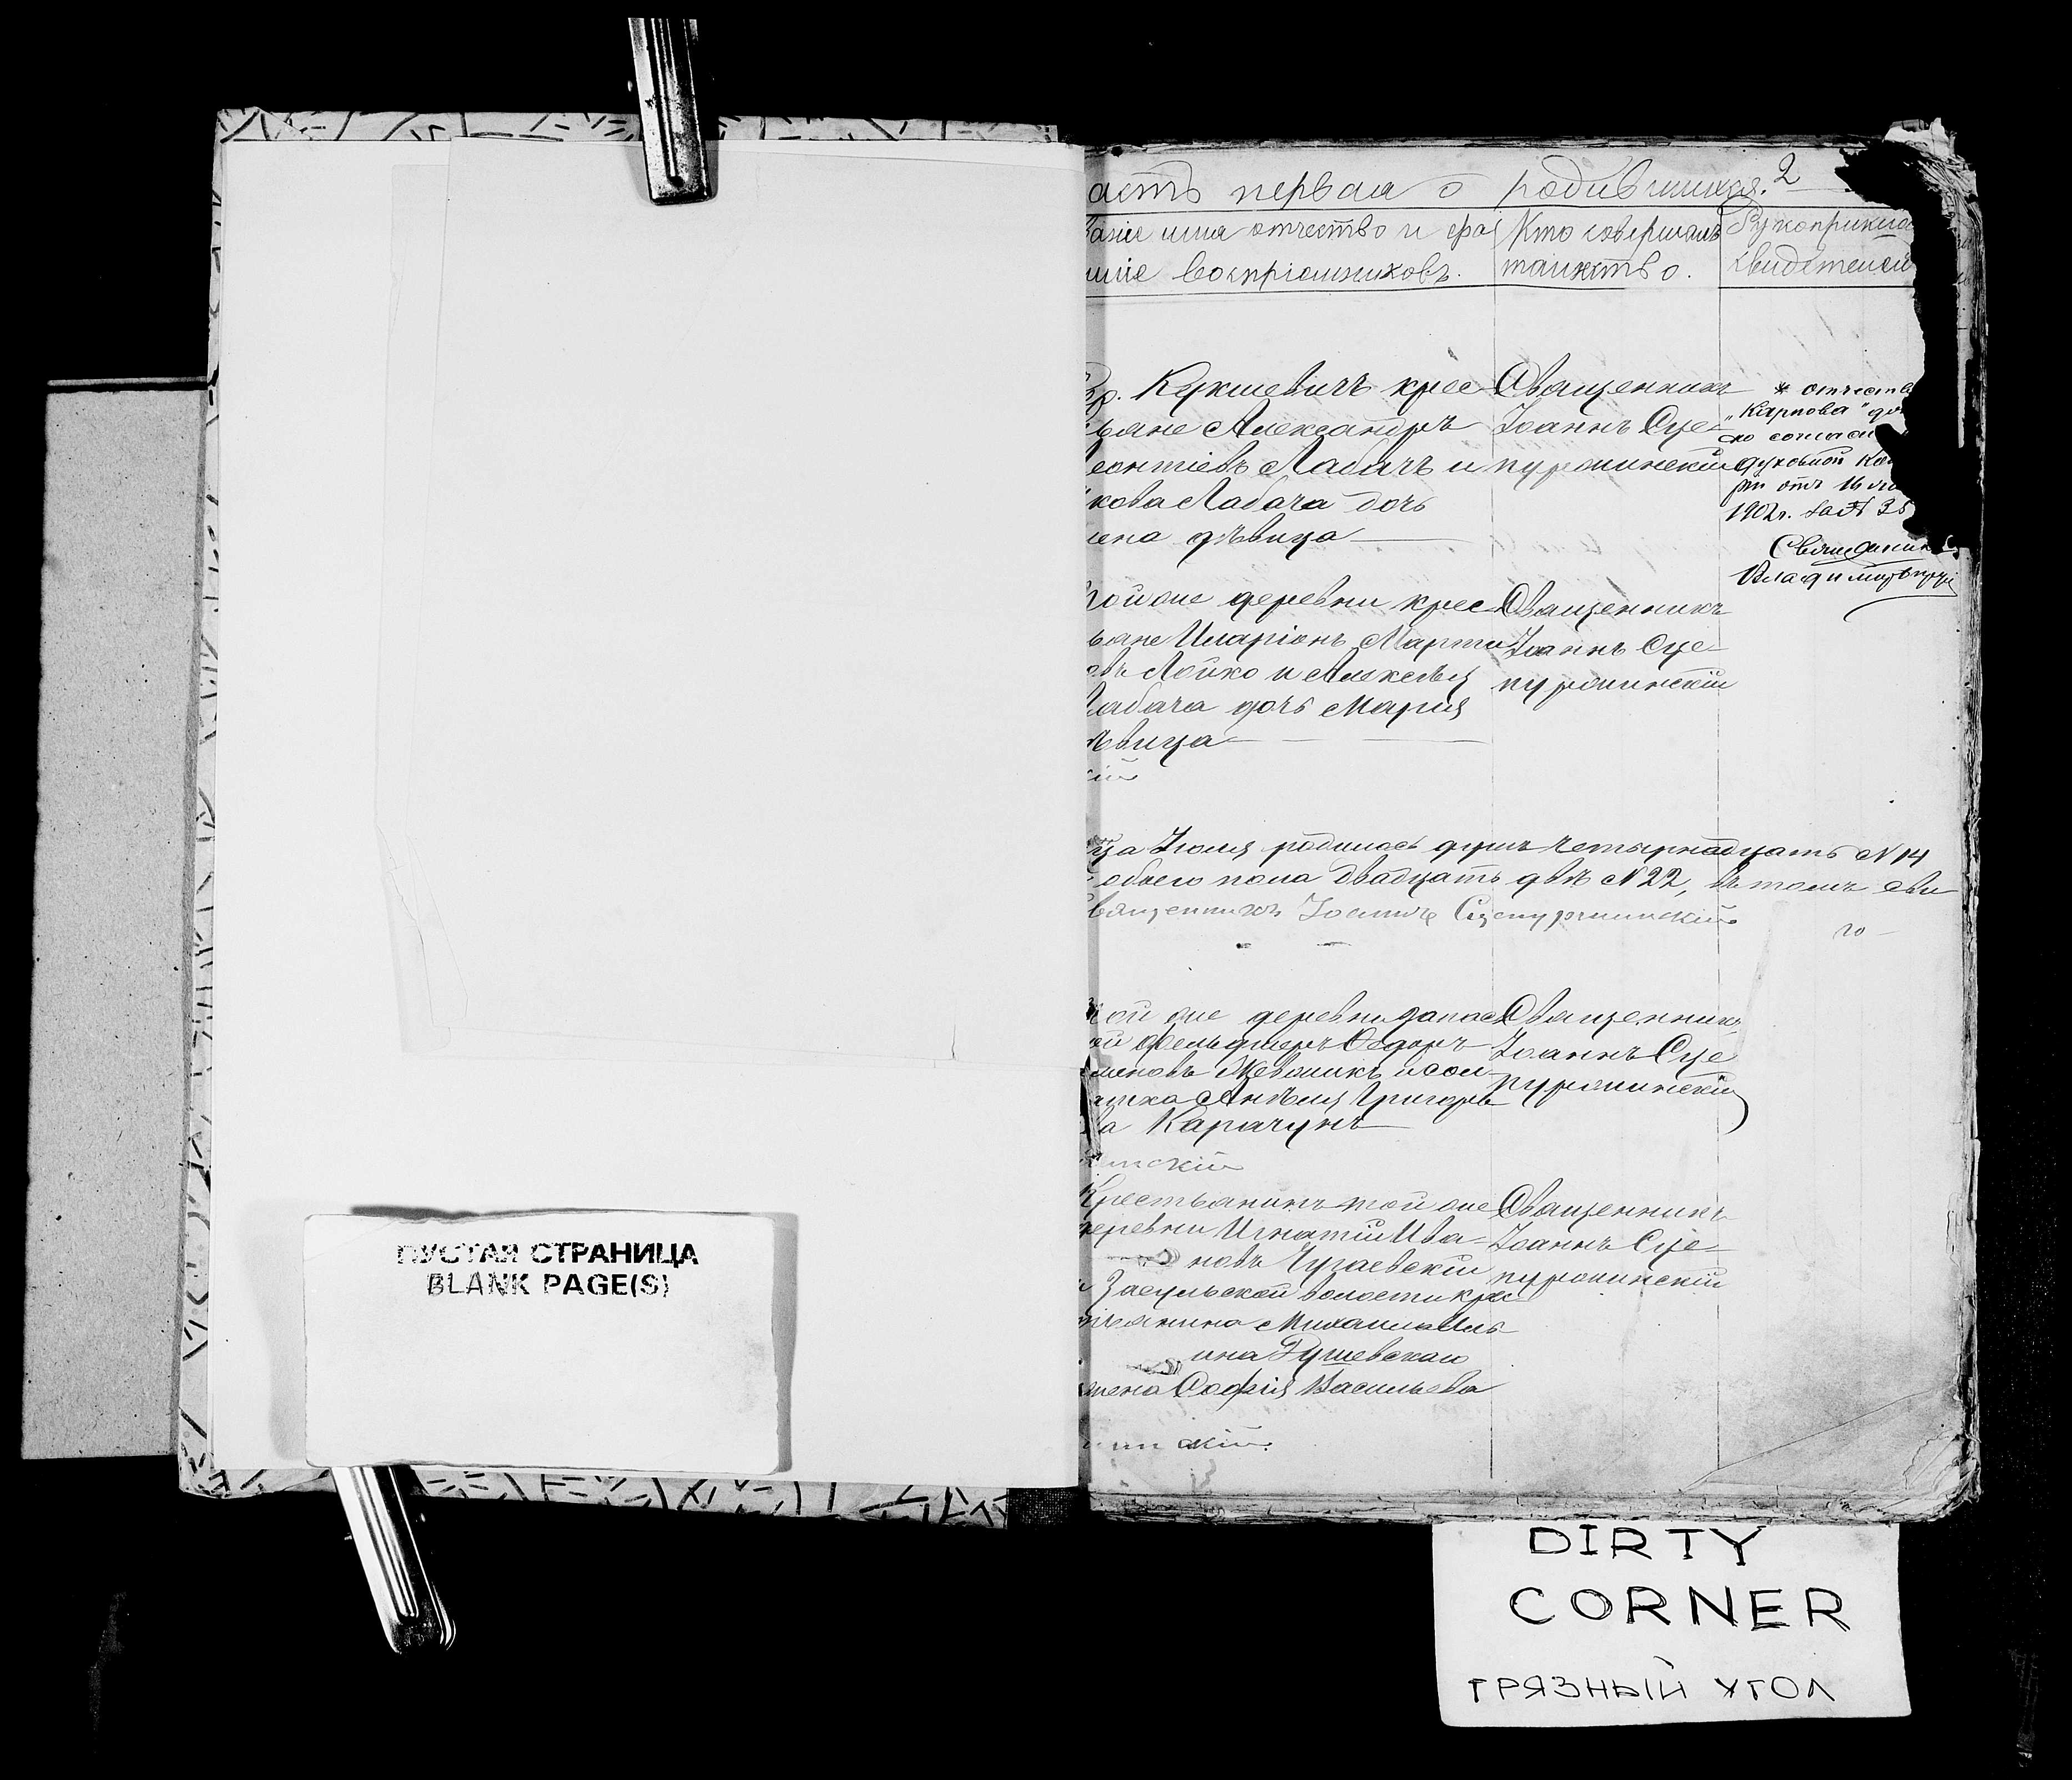 ПУСТАЯ СТРАНИЦА
BLANK PAGE(S)
асть первая о родившихся. 2
званіе имя отчество и фа
миліе воспріемниковъ.
Кто совершалъ
таинство.
Рукоприкла
свидетелей
др. Кукшевичъ крес
ьяне Александръ
еонтіевъ Лабачъ и
кова Лабача дочь
лена дѣвица
Священникъ
Іоаннъ Сце-
пуржинскій
* отчеств
„Карпова" до
но соглас
духовной Ко
ріи отъ 16
1902 г. за № 35
Священникъ
Владимиръ
той же деревни крес
ьяне Иларіонъ Марти
овъ Лойко и Алексѣя
Лабача дочь Марія
ѣвица
кій
Священникъ
Іоаннъ Сце-
пуржинскій
ца Іюля родилось душъ четырнадцать № 14
обоего пола двадцать двѣ № 22, въ томъ
Священникъ Іоаннъ Сцепуржинскій
той же деревни запас
ой фельдшеръ Ѳедоръ
меновъ Жевжикъ и сол
атка Анѣля Григорье
ва Карачунъ
инскій
Священникъ
Іоаннъ Сце
пуржинскій
Крестьянинъ той же
деревни Игнатій Ива-
новъ Чугаевскій
и Засульской волости крес
тьянина Михаила
ина Гушевскаго
жена Софія Васильева
инскій.
Священникъ
Іоаннъ Сце-
пуржинскій
DIRTY
CORNER
ГРЯЗНЫЙ УГОЛ